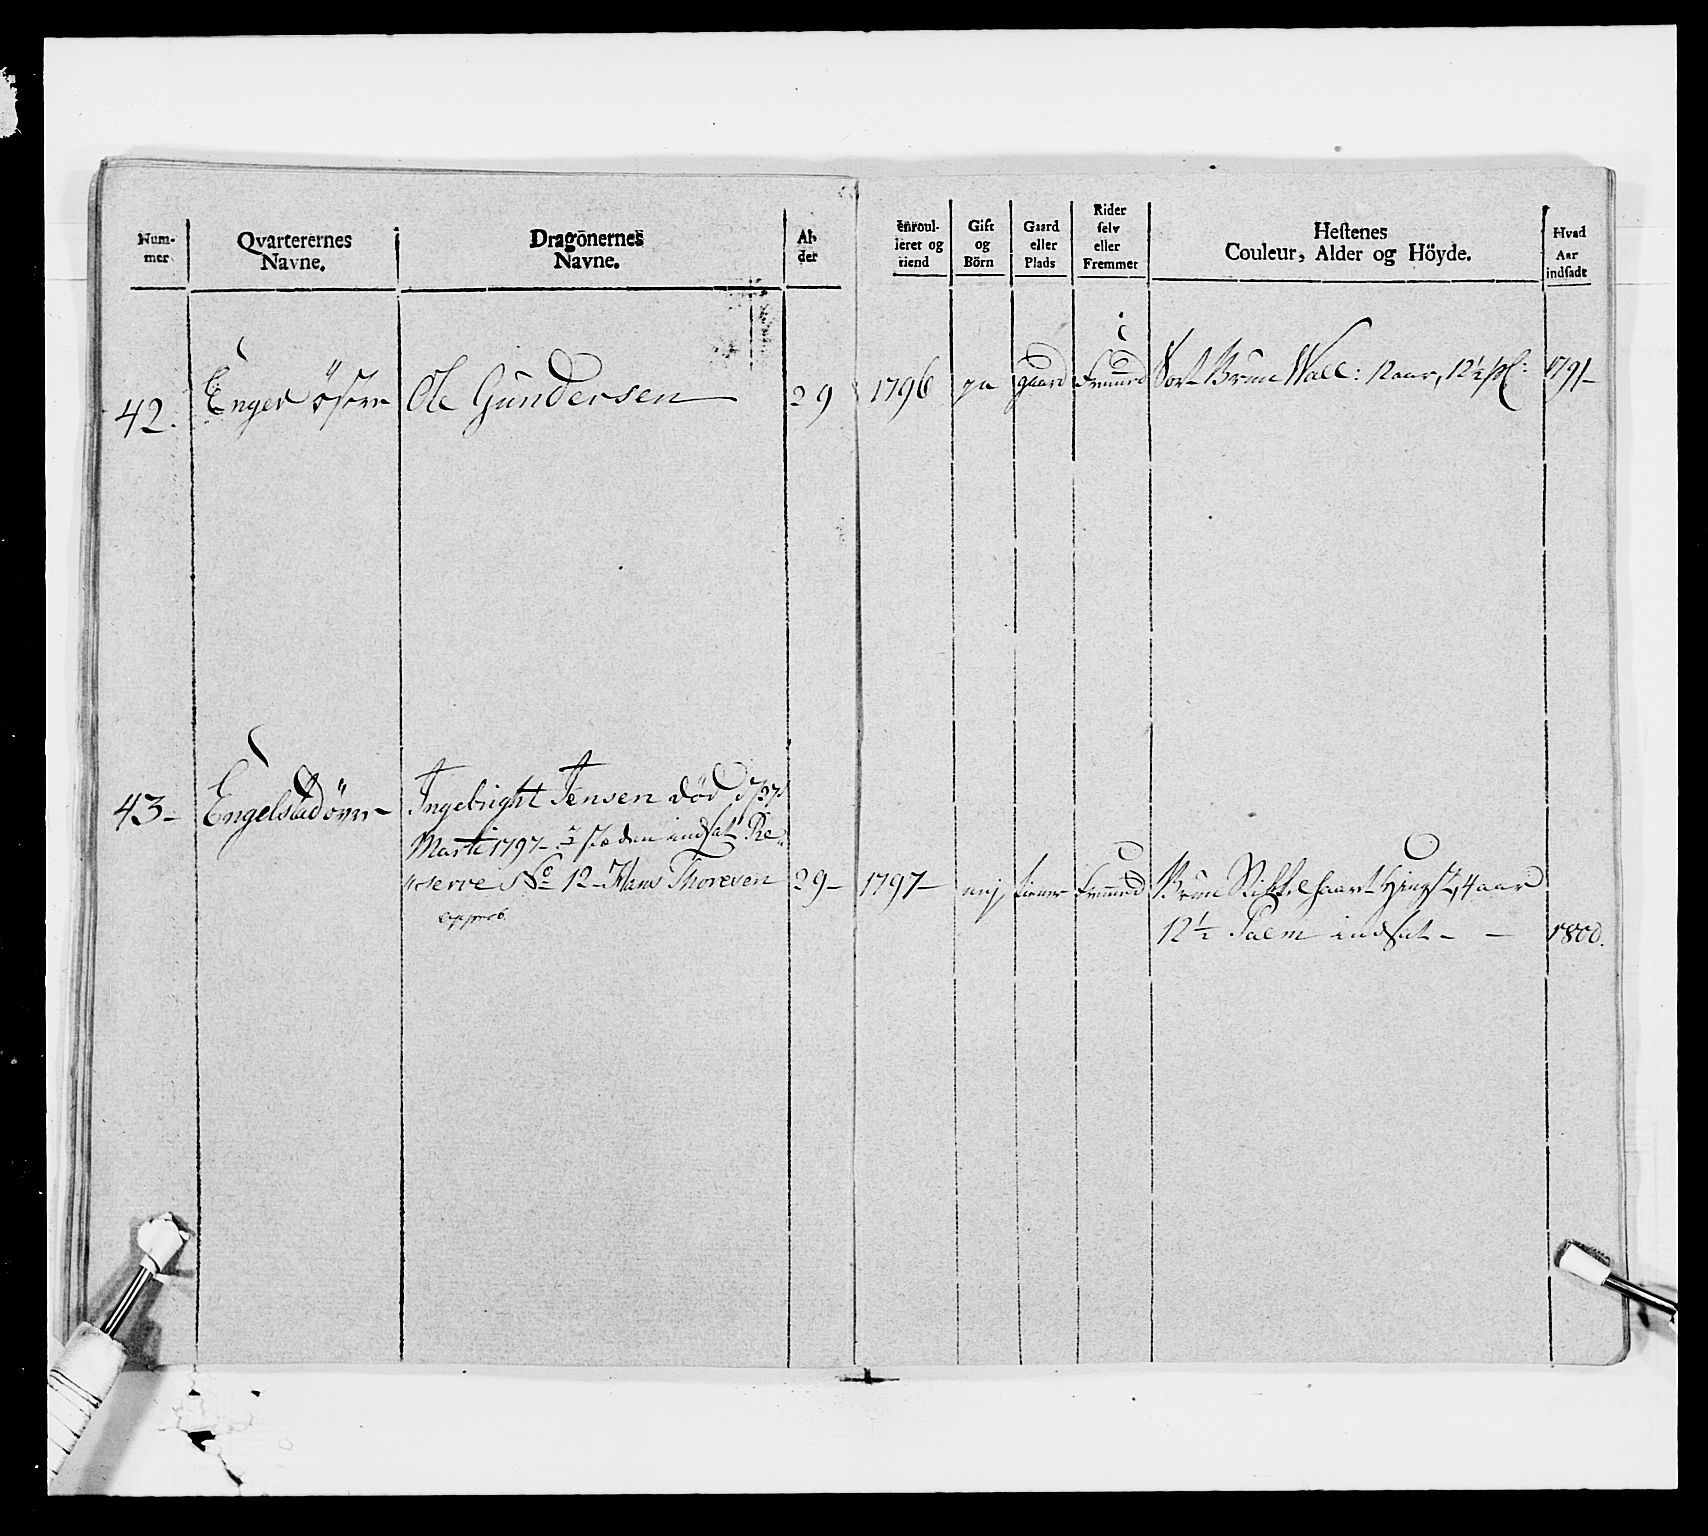 Num-
mer
Qvarterernes
Navne.
Dragonernes
Navne.
Al-
der
enroul-
ieret og
tiend
Gift
og
Börn
Gaard
eller
Plads
Rider
selv
eller
Fremmet
Hestenes
Couleur, Alder og Höyde.
Hvad
Aar
indsadt
42. Enger östre Ole Gundersen 29 1796 ja gaard Fremed Sort Brun Wall: 12 aar, 12½ pl: 1791-
43- Engelstad övre Ingebright Jensen död d 27de
Marti 1797- I stæden indsat Re-
serve No 12- Hans Thoresen 29- 1797- nej tiener Fremed Brun Stikkelhaaret Hingst, 4 aar
approb. 12½ Palm indsat - - 1800.